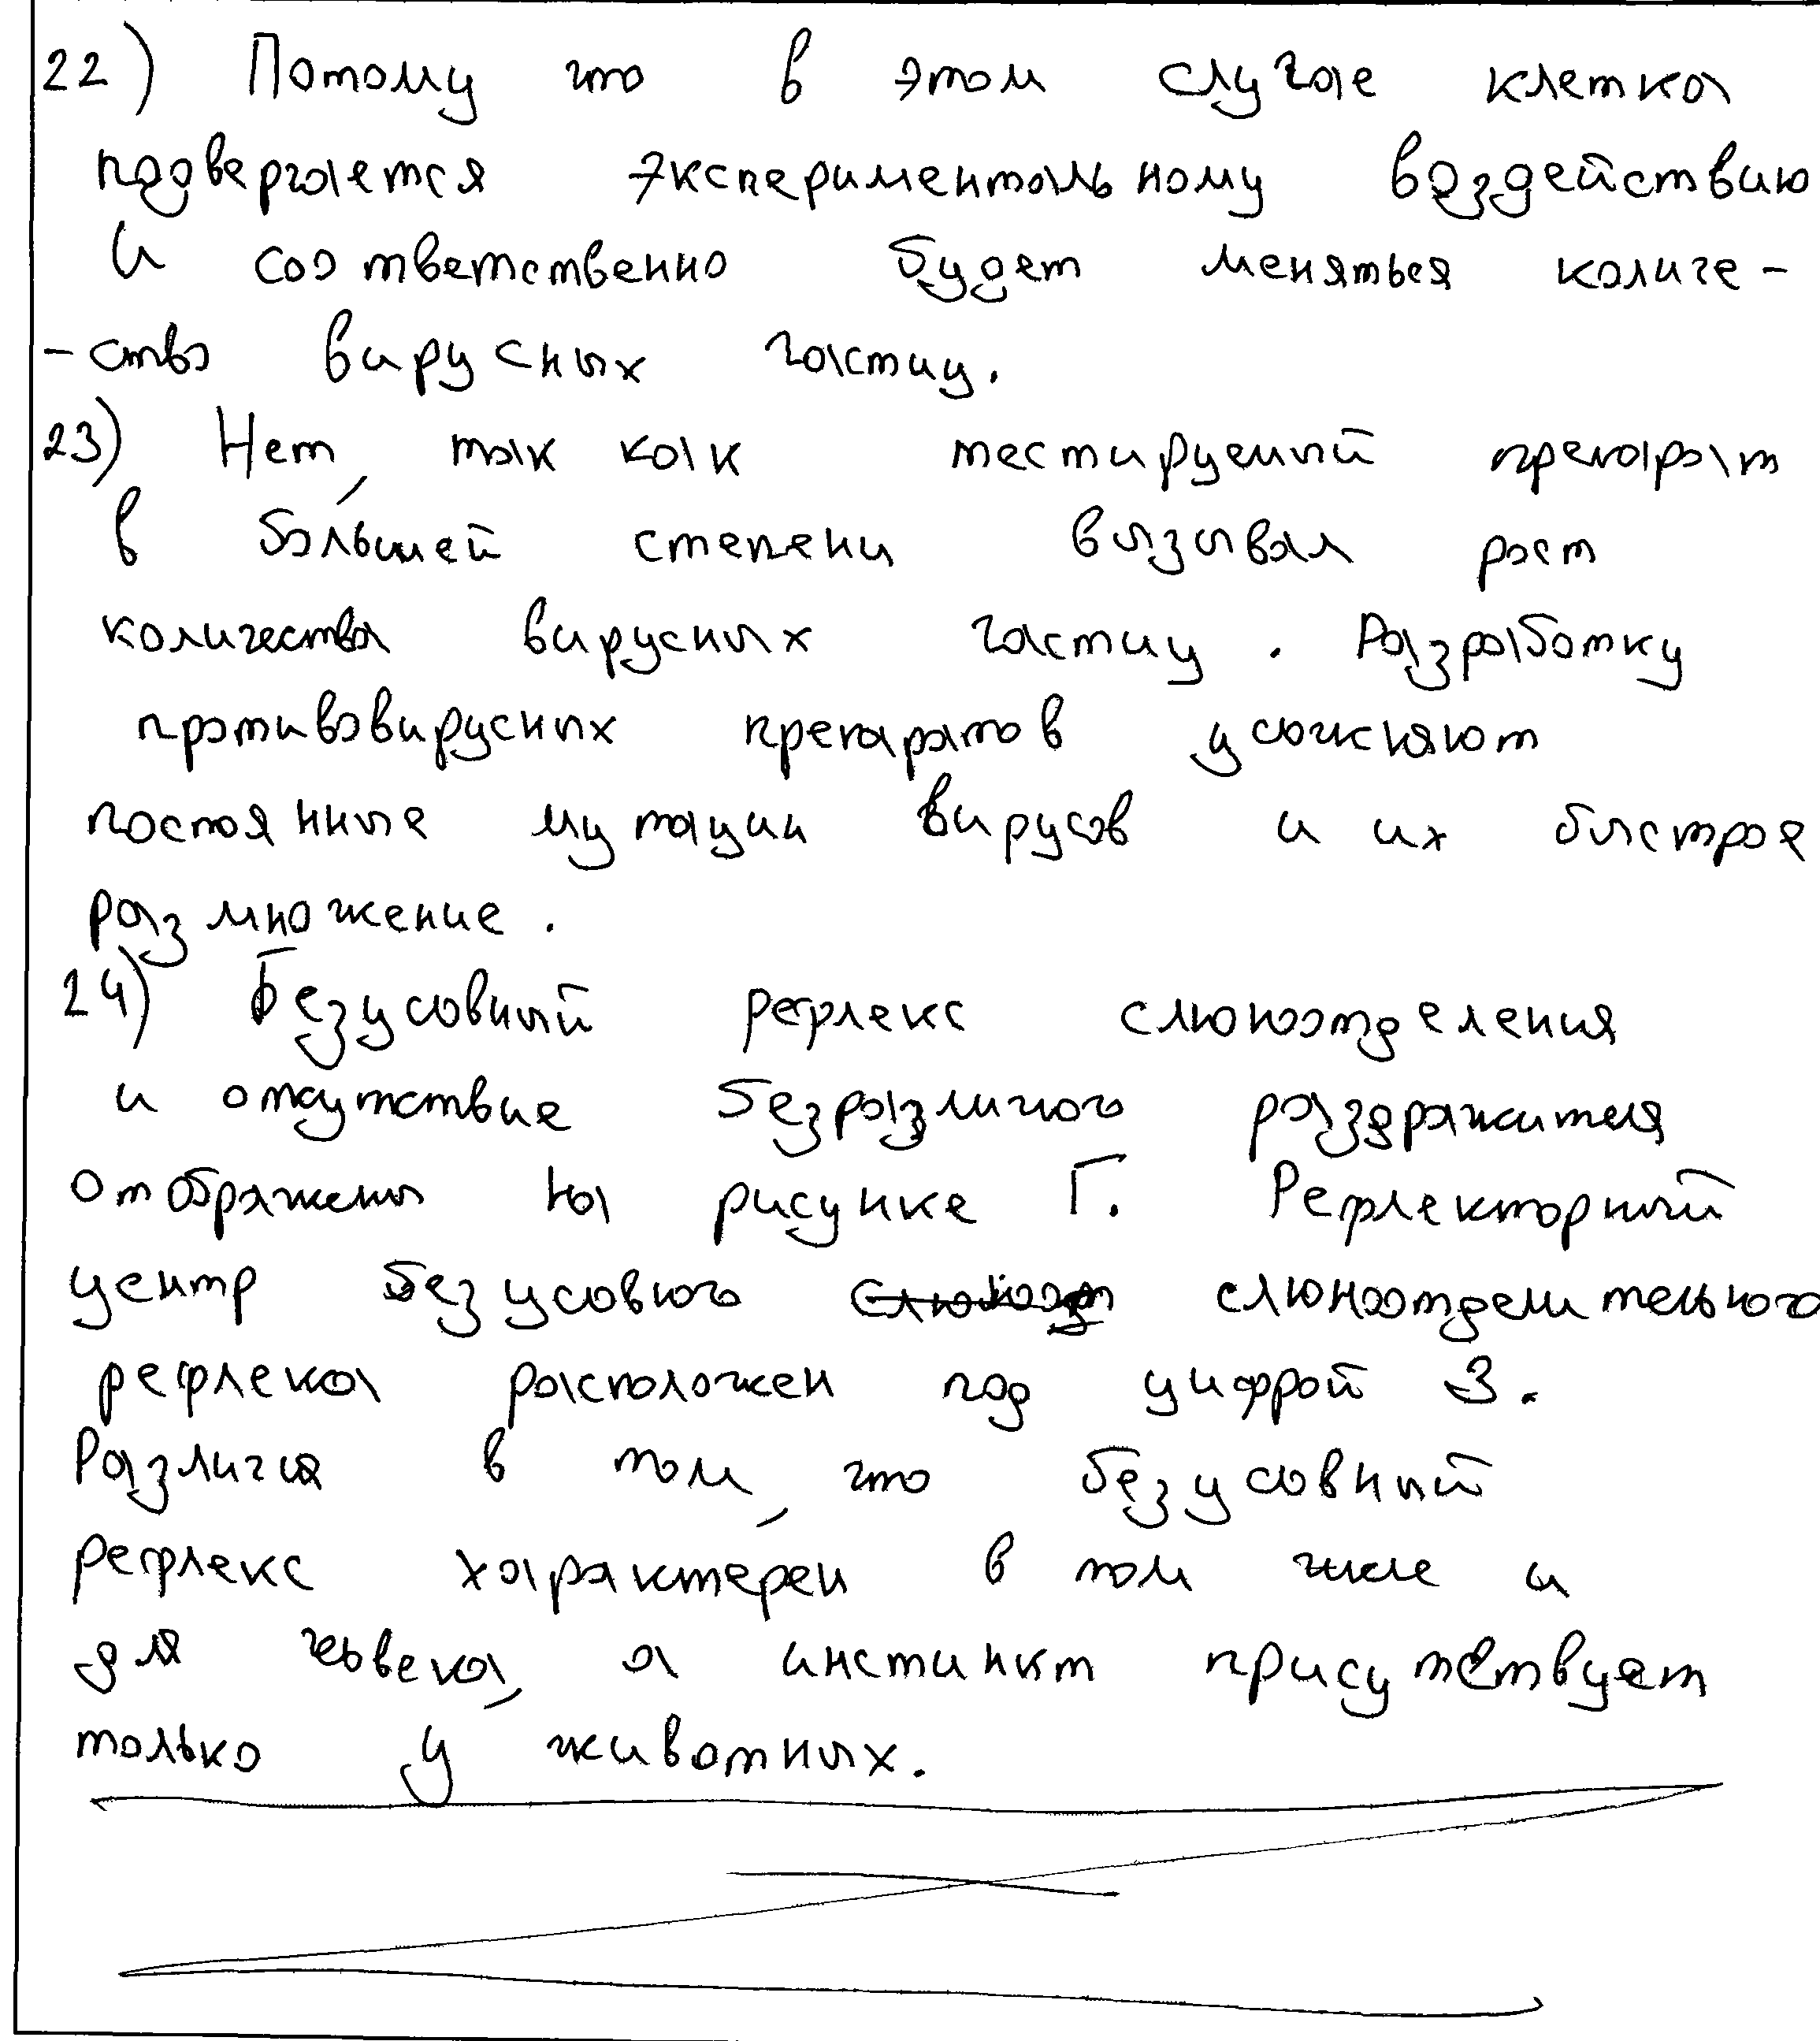 22) Потому что в этом случае клетка
подвергается экспериментальному воздействию
и соответственно будет меняться количе-
-ство вирусных частиц.
23) Нет, так как тестируемый препарат
в большей степени вызывал рост
количества вирусных частиц. Разработку
противовирусных препаратов усложняют
постоянные мутации вирусов и их быстрое
размножение.
24) Безусловный рефлекс слюноотделения
и отсутствие безразличного раздражителя
отображены на рисунке Г. Рефлекторный
центр безусловного слюноотделительного
рефлекса расположен под цифрой 3.
Различия в том, что безусловный
рефлекс характерен в том числе и
для человека, а инстинкт присутствует
только у животных.